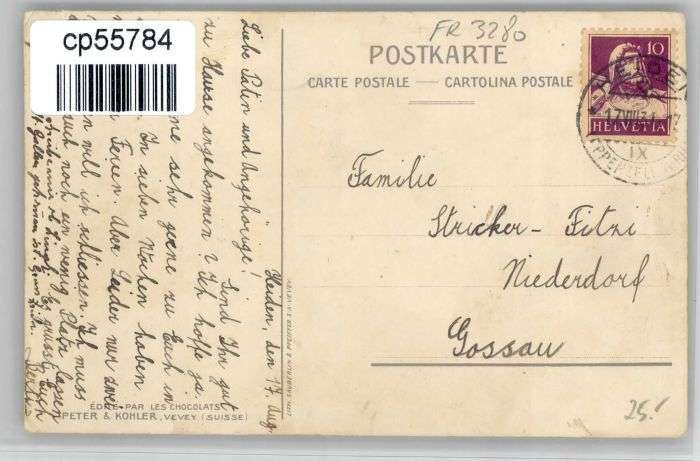 cp55784
FR 3280
POSTKARTE
CARTE POSTALE — CARTOLINA POSTALE
10
HELVETIA
HEIDEN
17.VIII.31
IX
Familie
Stricker - Fitzi
Niederdorf
Gossau
25.-
Heiden, den 17. Aug.
Liebe Patin und Angehörige!
Sind Ihr gut
zu Hause angekommen? Ich hoffe ja.
me sehr gerne zu Euch in
In sieben Wochen haben
Ferien. Aber leider nur zwei
will ich schliessen. Ich muss
noch ein wenig Platz lassen
Es grüsst Euch
EDITÉ PAR LES CHOCOLATS
PETER & KOHLER, VEVEY (SUISSE)